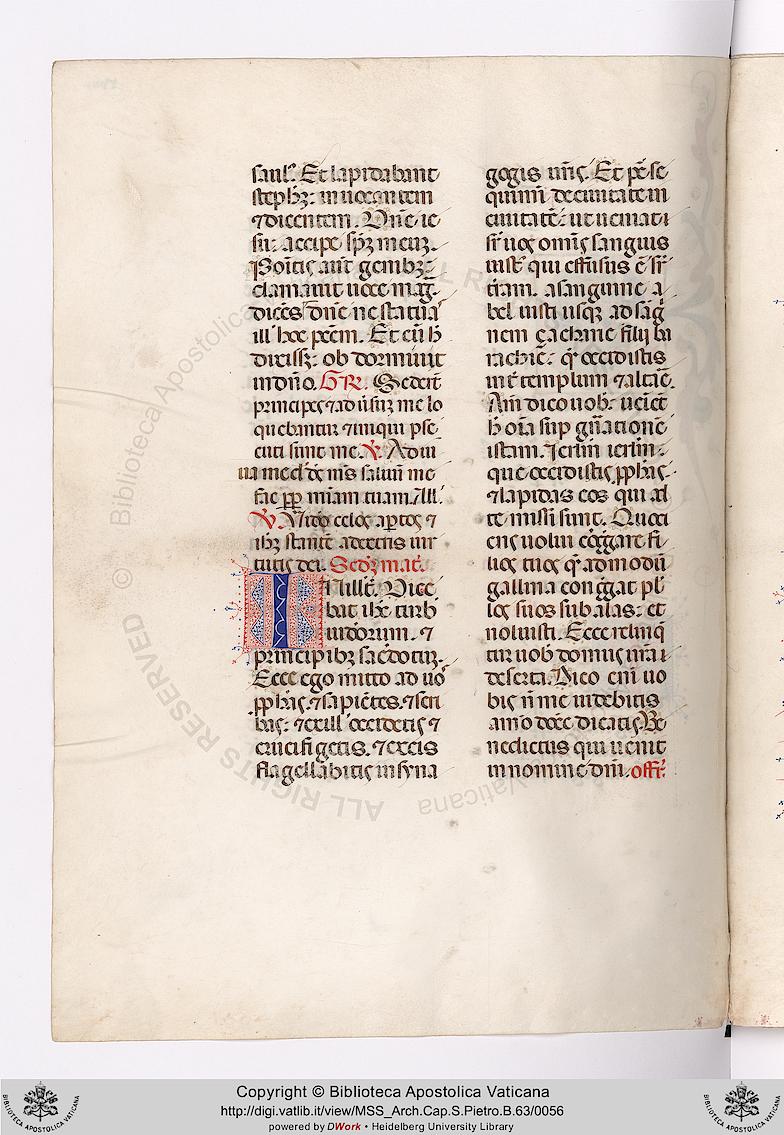 saul9. Et lapidabant
stephꝫ: inuocantem
⁊ dicentem. Dn̄e ie
su: accipe sp̄ꝫ meuꝫ.
Poi̅tis aut̅ genibꝫ:
clamauit uoce mag̅.
dice̅s. dn̄e ne statuas
ill' hoc pcc̄m. Et cu̅ h̅
dixissꝫ: obdormiuit
in dn̄o. GR. Seder̅t
principes ⁊ aduˀsuꝫ me lo
quebantur ⁊ iniqui pˀse
cuti sunt me. V. Adiu
ua me d̅ d̅s m̅s saluu̅ me
fac ꝓp̄ mi̅am tuam. All'.
V. Video celos ap̱tos ⁊
ihꝫ stante̅ a dextris uir
tutis dei. Sed'ꝫ mat̅.
IN illo t̅. Dice
bat ih̅c turb'
iudeorum. ⁊
principibꝫ sac̅dotuꝫ.
Ecce ego mitto ad uos
ꝓph̅as. ⁊ sapie̅tes. ⁊ scri
bas: ⁊ ex ill' occidetis ⁊
crucifigetis. ⁊ ex eis
flagellabitis in syna
gogis ur̅is. Et pˀse
quimini de ciuitate in
ciuitate̅: ut ueniat
sr̅ uos omi̅s sanguis
iust' qui effusus e̅ sr̅
t̅ram. a sanguine a
bel iusti usqꝫ ad sa̅g
nem çacharie filij ba
rachie: q̅ occidistis
int̅ templum ⁊ altar̅e.
Am̅ dico uob̅: ueni̅et
h̅ oi̅a suꝑ gn̅atione̅
istam. Jerl̅m ierl̅m.
que occidistis ꝓph̅as:
⁊ lapidas eos qui ad
te missi sunt. Quoci
ens uolui co̅g̅gare fi
lios tuos q̅admodu̅
gallina cong̅gat pl̅
los suos sub alas: et
noluisti. Ecce relinq̅
tur uob̅ domus ur̅a
deserta. Dico eni̅ uo
bis n̅ me uidebitis
amodo donec dicatis. Be
nedictus qui uenit
in nomine dn̅i. off̅.
Biblioteca Apostolica Vaticana
© ALL RIGHTS RESERVED
Copyright © Biblioteca Apostolica Vaticana
http://digi.vatlib.it/view/MSS_Arch.Cap.S.Pietro.B.63/0056
powered by DWork • Heidelberg University Library